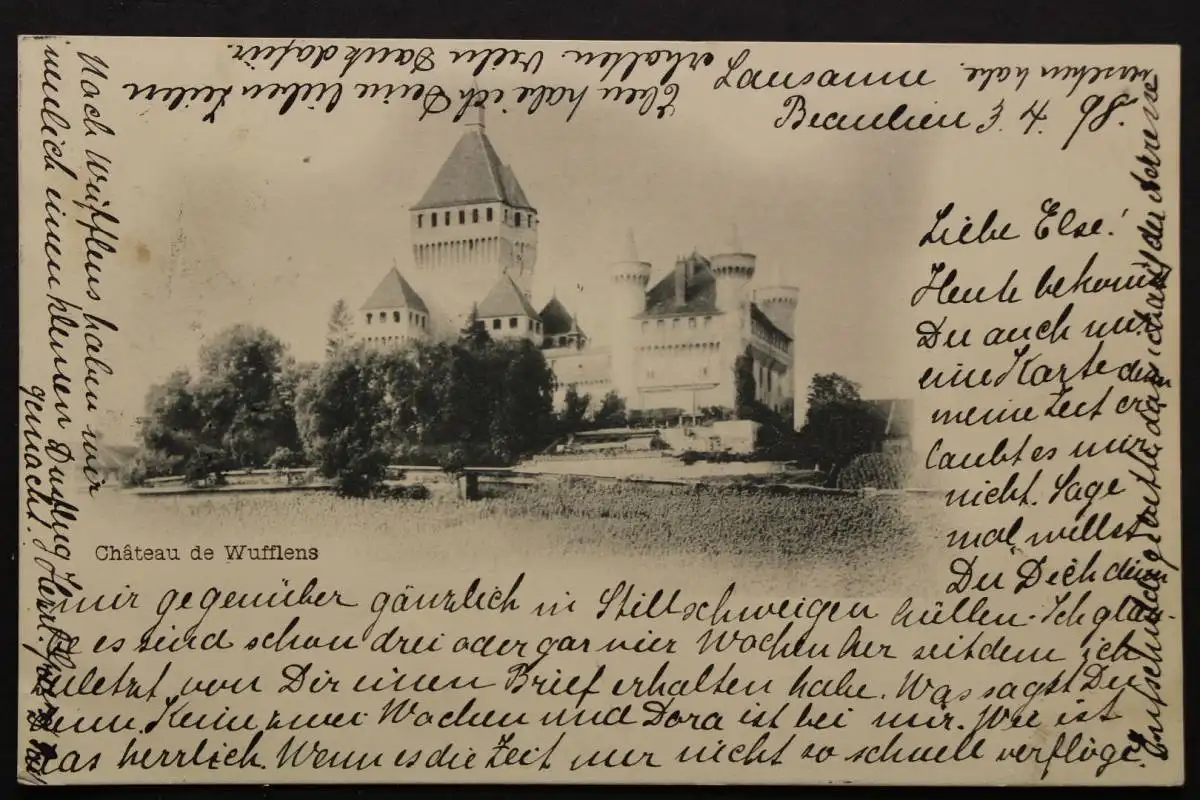 Lausanne
Beaulieu 3. 4. 98.
Liebe Else!
Heute bekommst
Du auch nur
eine Karte denn
meine Zeit er
laubt es mir
nicht. Sage
mal willst
Du Dich denn
mir gegenüber gänzlich in Stillschweigen hüllen. Ich glau-
be es sind schon drei oder gar vier Wochen her seitdem ich
zuletzt von Dir einen Brief erhalten habe. Was sagst Du
denn. Keine zwei Wochen und Dora ist bei mir. Wie ist
das herrlich. Wenn es die Zeit nur nicht so schnell verflöge.
Nach Wufflens haben wir
neulich einen kleinen Ausflug
gemacht. Herzl.
Eben habe ich Deine lieben Zeilen
erhalten Vielen Dank dafür.
Entschuldige bitte daß ich auf der Adresse
versehen habe.
Château de Wufflens